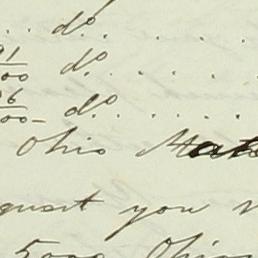 ... do . . . .
91/100 do . . . .
96/100 do . . . . .
Ohio
quest you
5000 Ohio